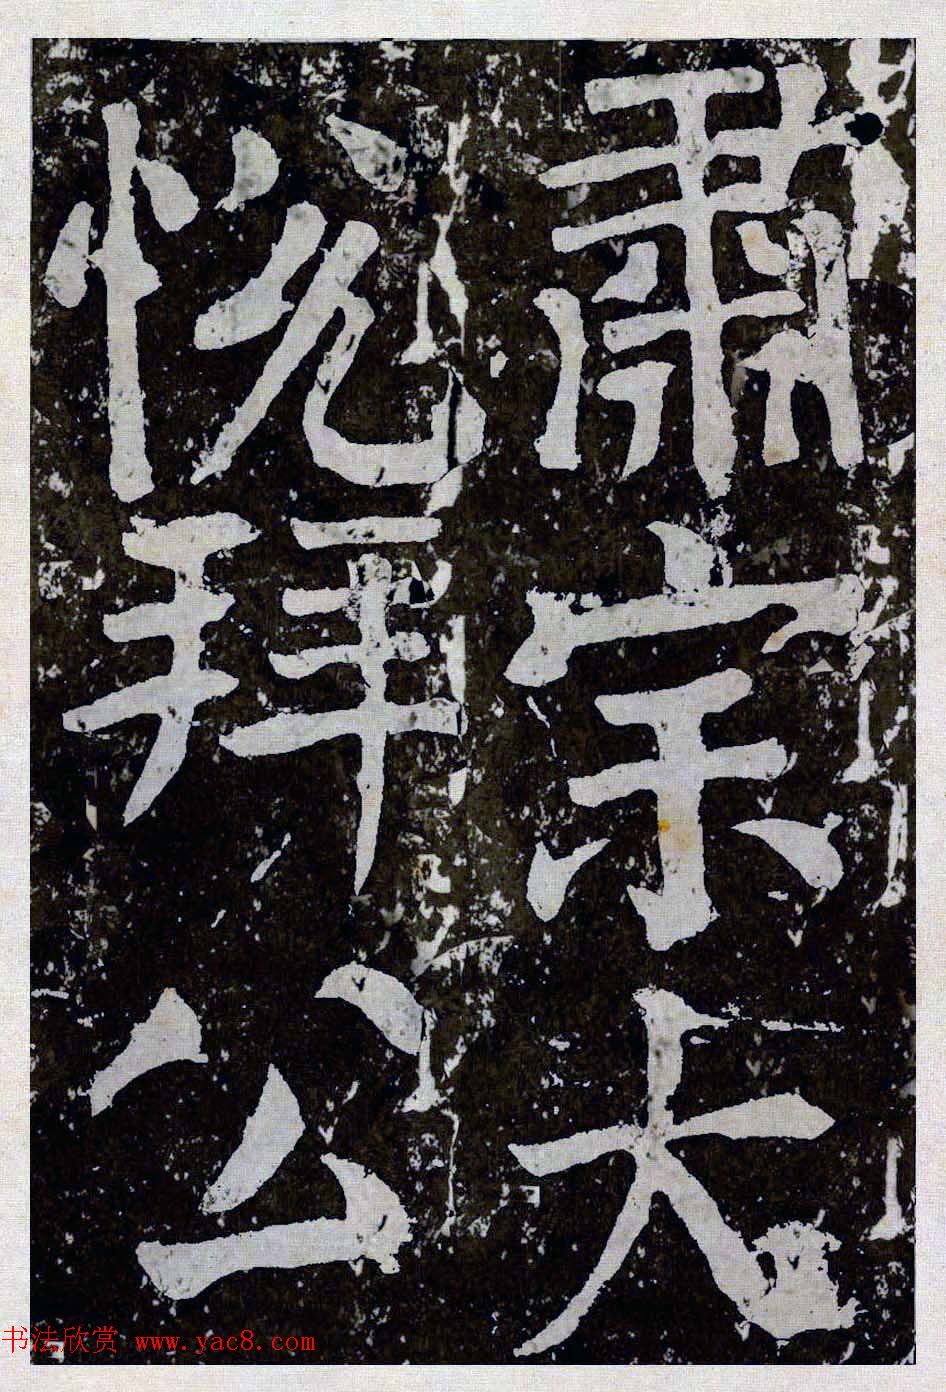 肅宗大
悅拜公
书法欣赏 www.yac8.com